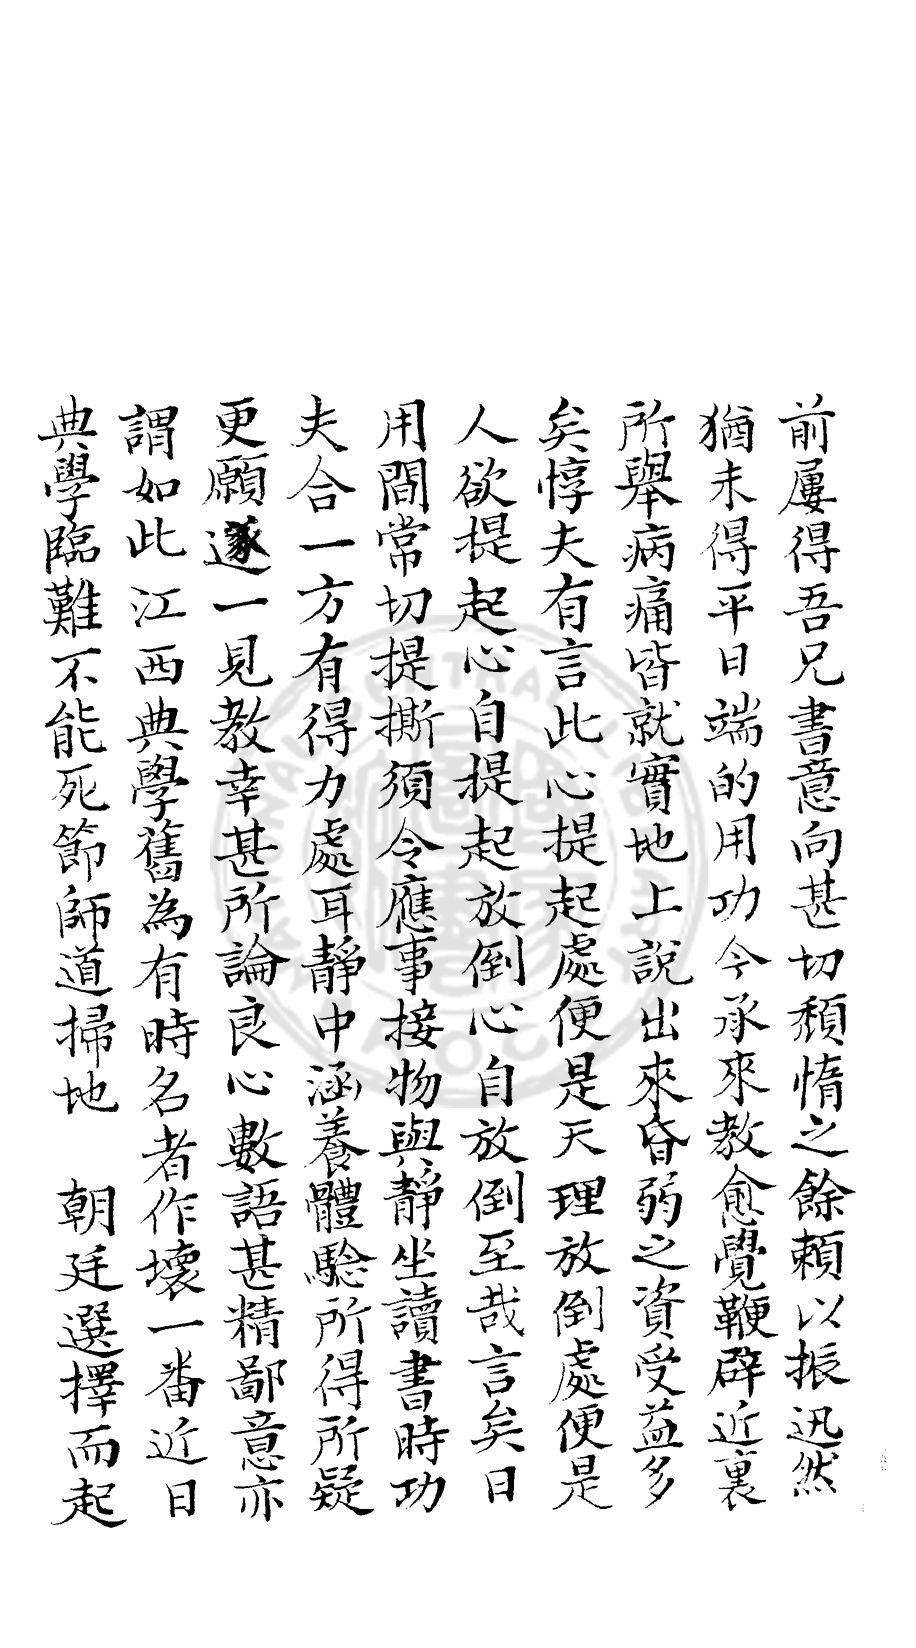 前屢得吾兄書意向甚切頹惰之餘賴以振迅然
猶未得平日端的用功今承來教愈覺鞭辟近裏
所舉病痛皆就實地上說出來昏弱之資受益多
矣惇夫有言此心提起處便是天理放倒處便是
人欲提起心自提起放倒心自放倒至哉言矣日
用間常切提撕須令應事接物與靜坐讀書時功
夫合一方有得力處耳靜中涵養體驗所得所疑
更願遂一見教幸甚所論良心數語甚精鄙意亦
謂如此江西典學舊為有時名者作壞一番近日
典學臨難不能死節師道掃地　朝廷選擇而起